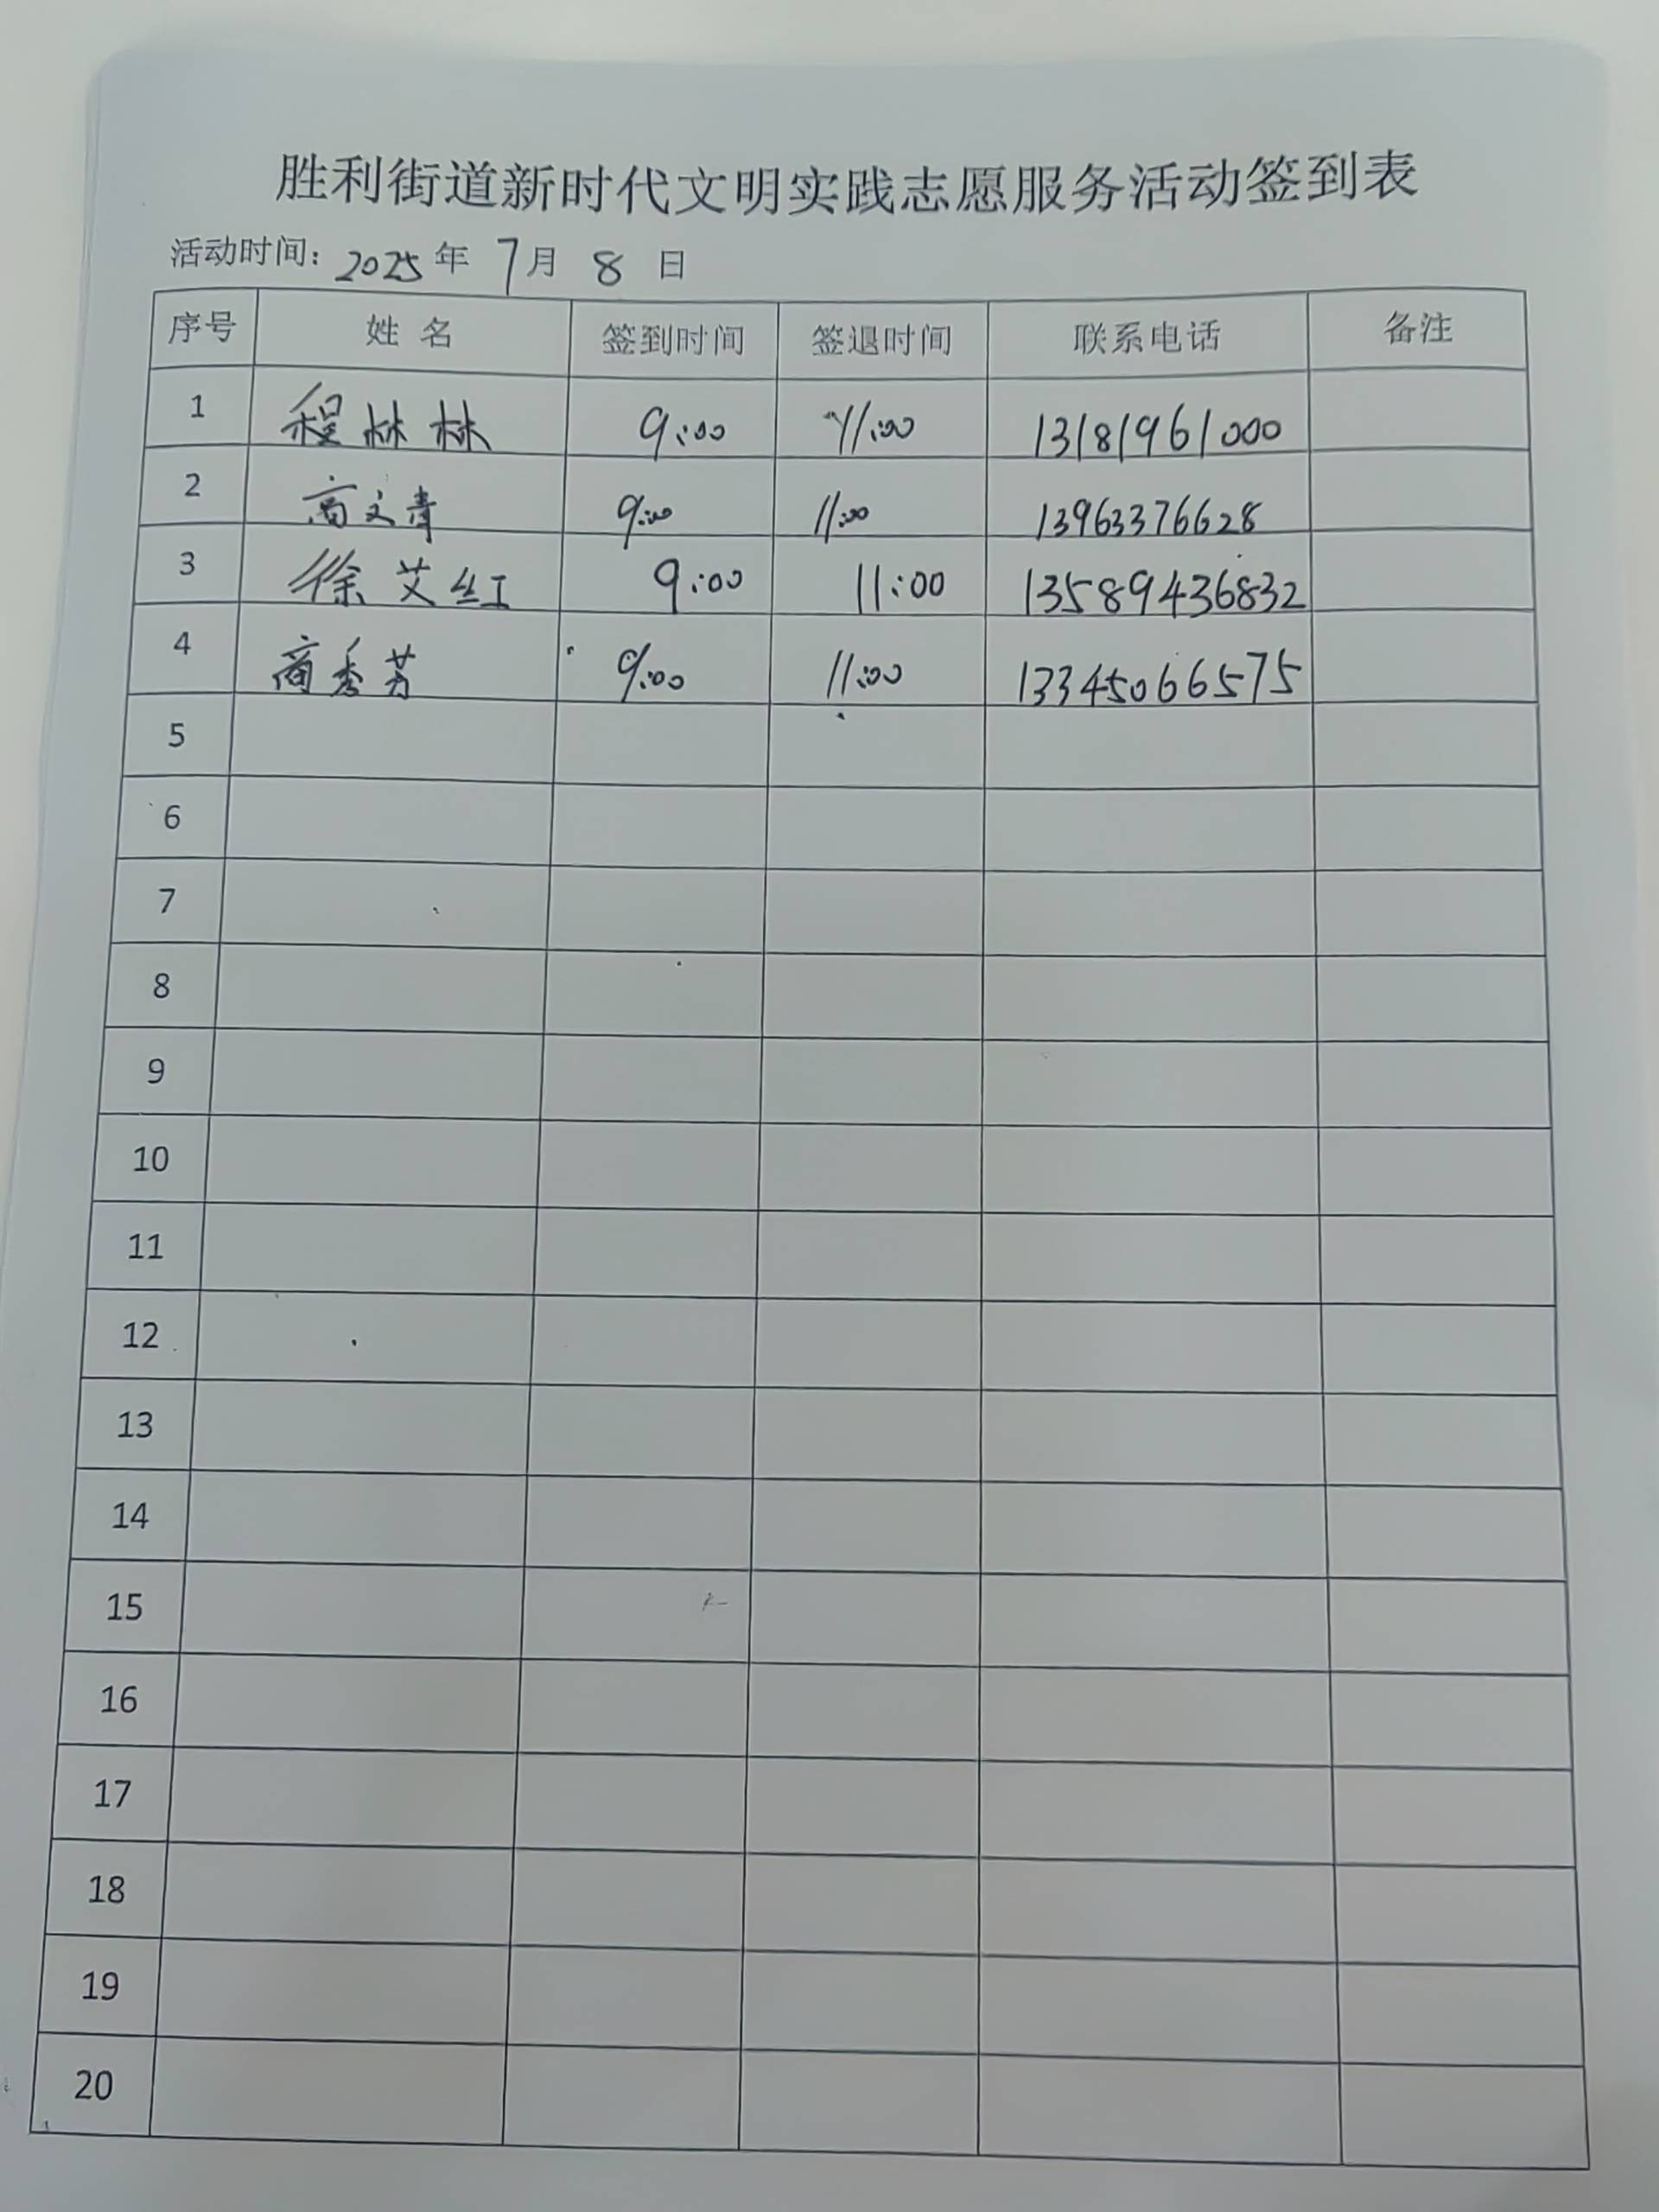 胜利街道新时代文明实践志愿服务活动签到表
活动时间: 2025 年 7 月 8 日
序号 姓名 签到时间 签退时间 联系电话 备注
1 程林林 9:00 11:00 13181961000
2 高文青 9:00 11:00 13963376628
3 徐艾红 9:00 11:00 13589436832
4 商秀芳 9:00 11:00 13345066575
5
6
7
8
9
10
11
12
13
14
15
16
17
18
19
20